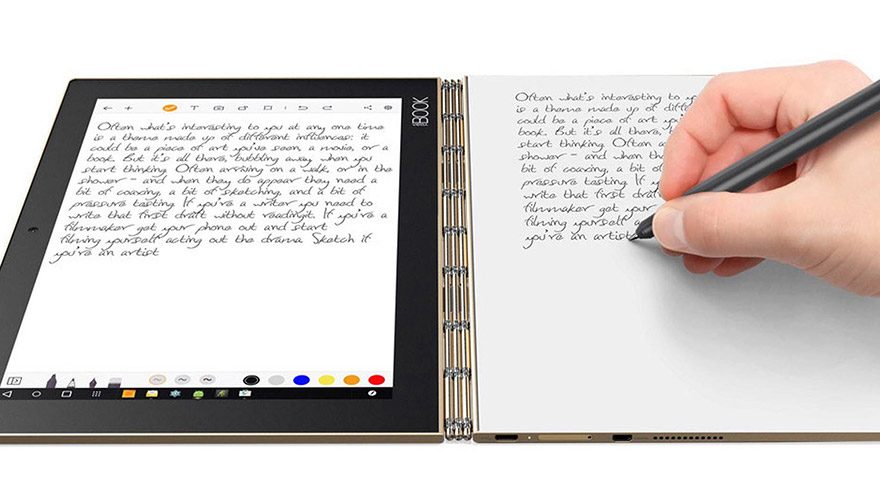 T
Often what's interesting to you at any one time
is a theme made up of different influences: it
could be a piece of art you've seen, a movie, or a
book. But it's all there, bubbling away when you
start thinking. Often arising on a walk, or in the
shower - and when they do appear they need a
bit of coaxing, a bit of sketching, and a bit of
pressure testing. If you're a writer you need to
write that first draft without readingit. If you're a
filmmaker get your phone out and start
filming yourself acting out the drama. Sketch if
you're an artist
BOOK
Often what's interesting to
is a theme made up of
could be a piece of art
book. But it's all there,
start thinking. Often
shower - and when th
bit of coaxing, a bit of
pressure testing. If
write that first draft
filmmaker get your
filming yourself
you're an artist